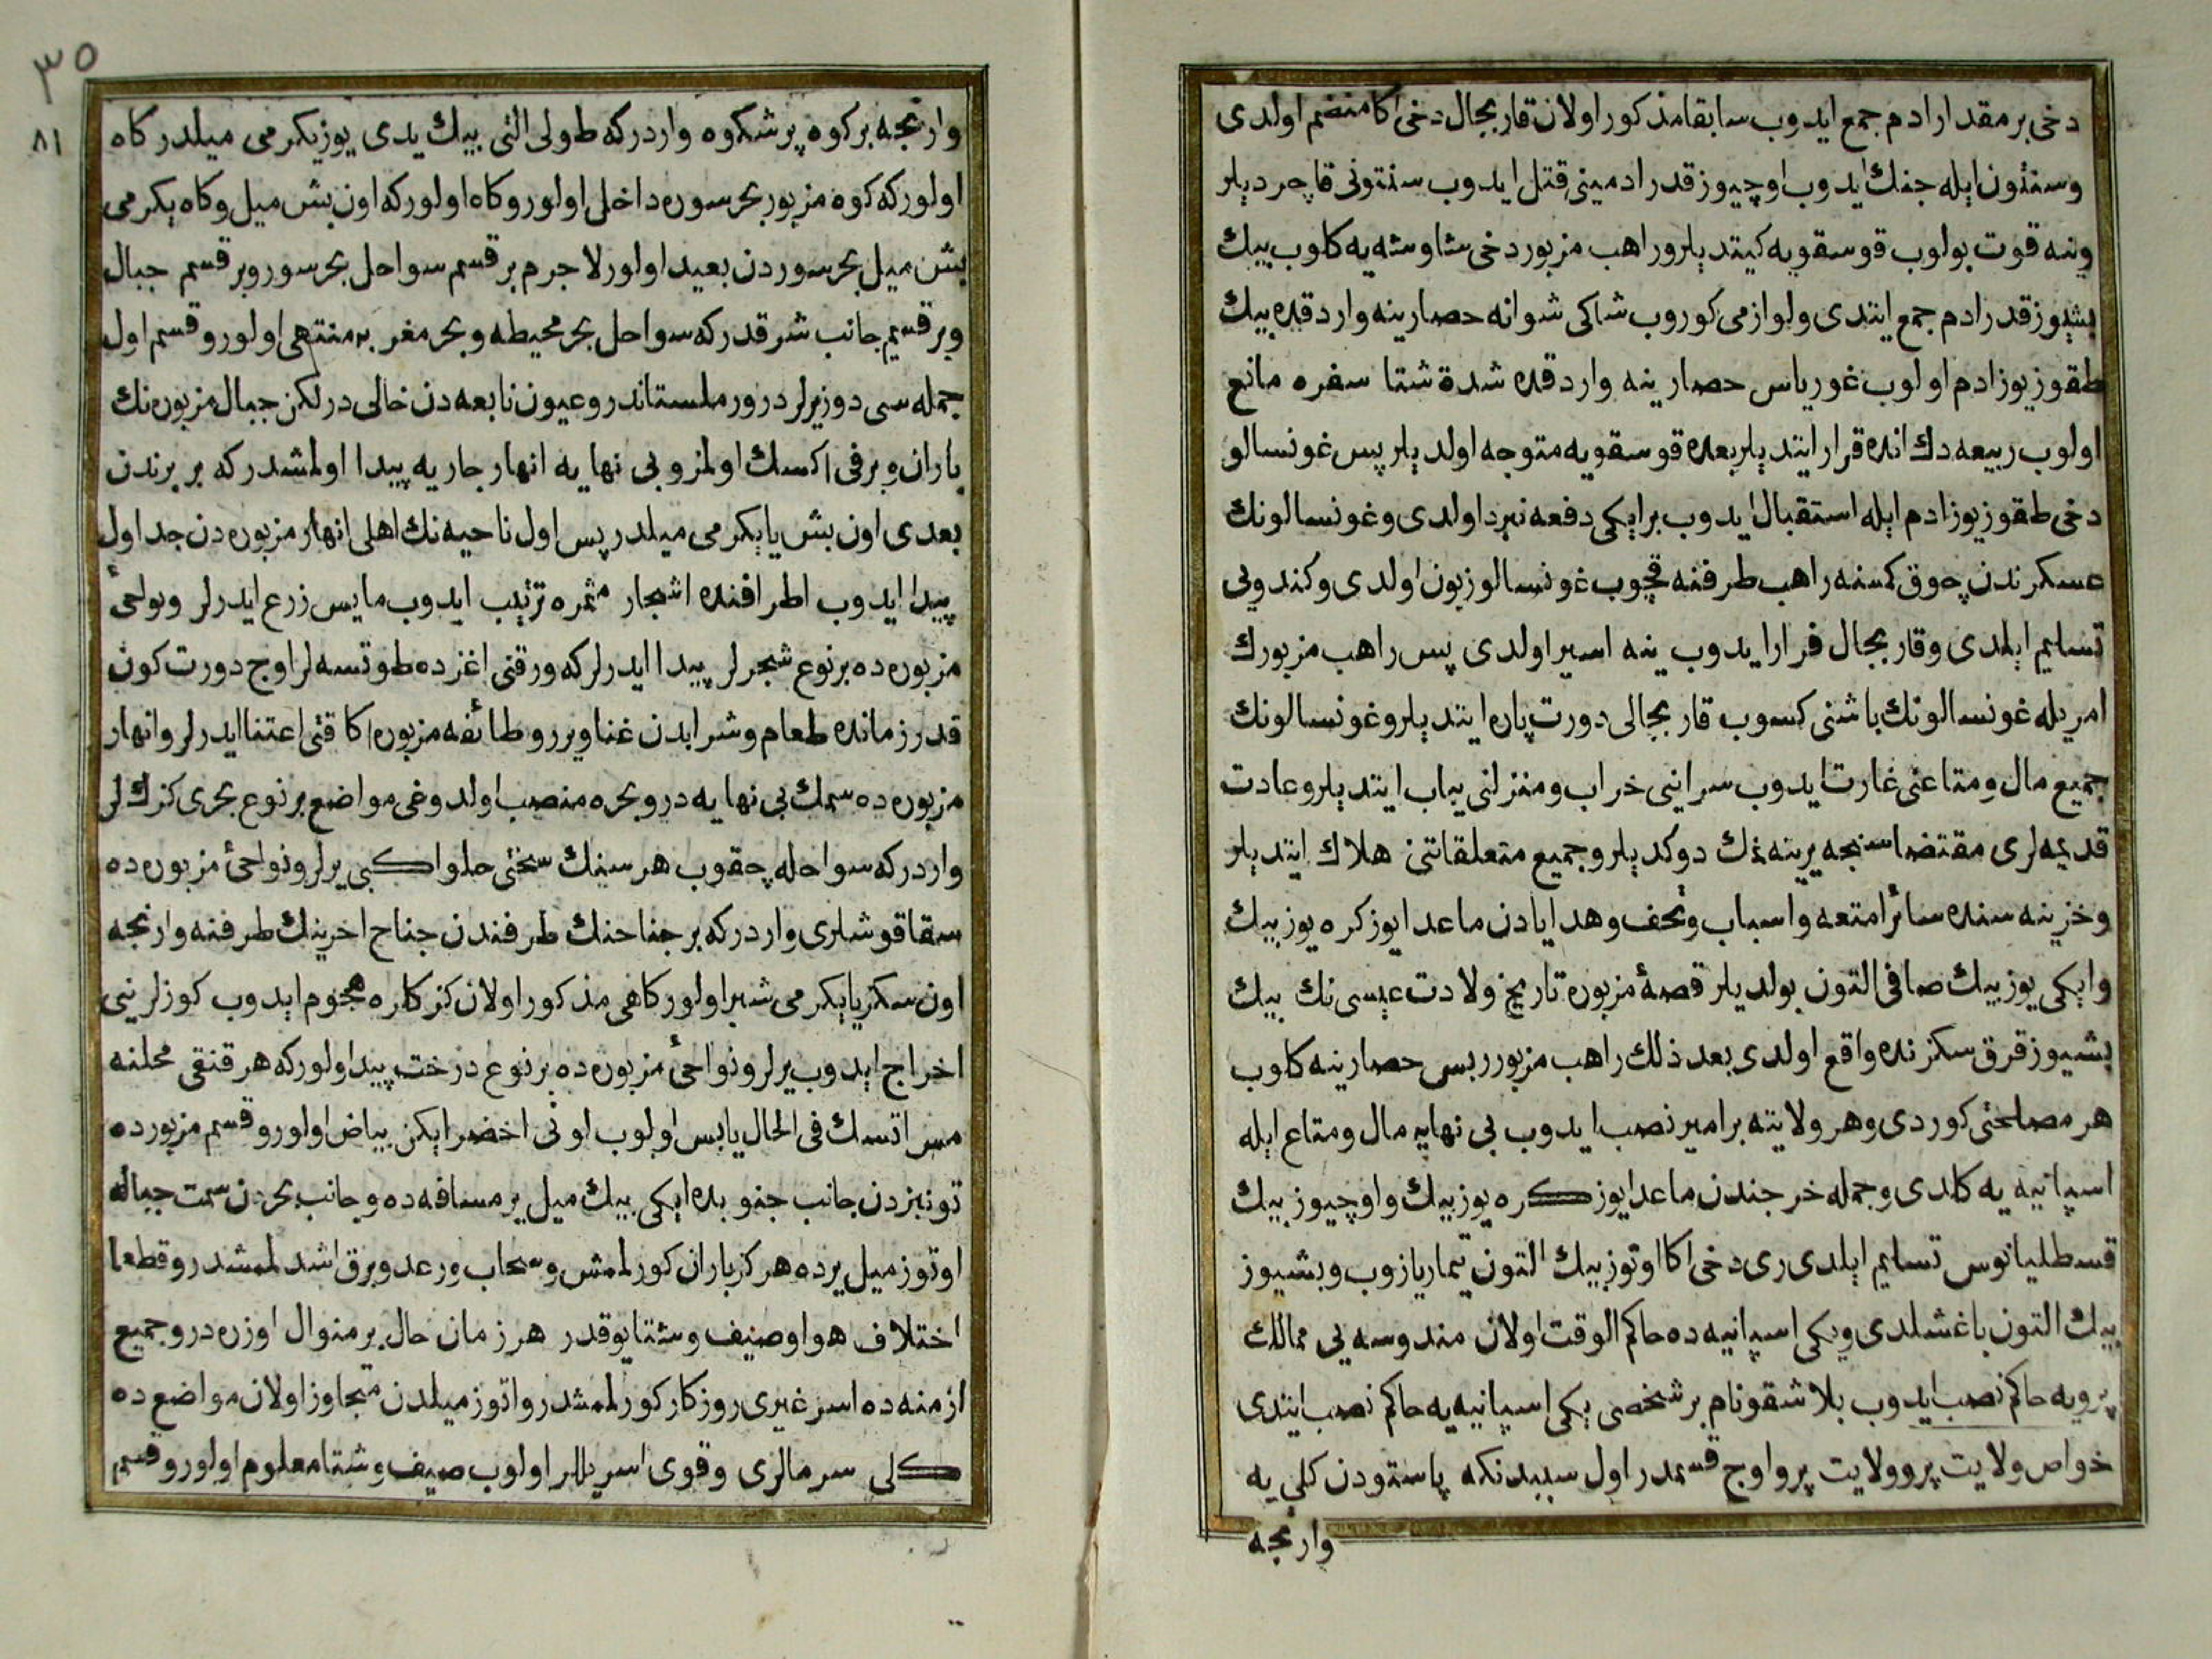 دخی بر مقدار ادم جمع ایدوب سابقا مذكور اولان قاربجال دخی اكا منضم اولدی
وسنتون ایله جنك ایدوب اوچیوز قدر ادمینی قتل ایدوب سنتونی قاچردیلر
وینه قوت بولوب قوسقویه كیتدیلر وراهب مزبور دخی شاوشه یه كلوب بیك
بشیوز قدر ادم جمع ایتدی ولوازمی كوروب شاكی شوانه حصارینه واردقده بیك
طقوز یوز ادم اولوب غوریاس حصارینه واردقده شدة شتا سفره مانع
اولوب ربیعه دك انده قرار ایتدیلر بعده قوسقویه متوجه اولدیلر پس غونسالو
دخی طقوز یوز ادم ایله استقبال ایدوب بر ایكی دفعه نبرد اولدی وغونسالونك
عسكرندن چوق كمسنه راهب طرفنه قچوب غونسالو زبون اولدی وكندویی
تسلیم ایلدی وقاربجال فرار ایدوب ینه اسیر اولدی پس راهب مزبورك
امریله غونسالونك باشنی كسوب قاربجالی دورت پاره ایتدیلر وغونسالونك
جمیع مال ومتاعنی غارت ایدوب سراینی خراب ومنزلنی یباب ایتدیلر وعادت
قدیمه لری مقتضاسنجه یرینه نمك دوكدیلر وجمیع متعلقاتنی هلاك ایتدیلر
وخزینه سنده سائر امتعه واسباب وتحف وهدایادن ماعدا یوز كره یوز بیك
وایكی یوز بیك صافی التون بولدیلر قصهٔ مزبوره تاریخ ولادت عیسی نك بیك
بشیوز قرق سكزنده واقع اولدی بعد ذلك راهب مزبور ربس حصارینه كلوب
هر مصلحتی كوردی وهر ولایته بر امیر نصب ایدوب بی نهایه مال ومتاع ایله
اسپانیه یه كلدی وجمله خرجندن ماعدا یوز كره یوز بیك واوچیوز بیك
قسطلیانوس تسلیم ایلدی ری دخی اكا اوتوز بیك التون تیمار یازوب وبشیوز
بیك التون باغشلدی ویكی اسپانیه ده حاكم الوقت اولان مندوسه یی ممالك
پرویه حاكم نصب ایدوب بلاشقو نام بر شخصی یكی اسپانیه یه حاكم نصب ایتدی
خواص ولایت پرو ولایت پرو اوج قسمدر اول سببدنكه پاستودن كلی یه
وارنجه
٣٥
٨١
وارنجه بر كوه پرشكوه واردركه طولی التی بیك یدی یوز یكرمی میلدر كاه
اولوركه كوه مزبور بحر سوره داخل اولور وكاه اولوركه اون بش میل وكاه یكرمی
بش میل بحر سوردن بعید اولور لاجرم بر قسم سواحل بحر سور وبر قسم جبال
وبر قسم جانب شرقدركه سواحل بحر محیطه وبحر مغربه منتهی اولور وقسم اول
جمله سی دوز یرلردر ورملستاندر وعیون نابعه دن خالی در لكن جبال مزبوره نك
باران وبرفی اكسك اولمز وبی نهایه انهار جاریه پیدا اولمشدركه بر برندن
بعدی اون بش یا یكرمی میلدر پس اول ناحیه نك اهلی انهار مزبوره دن جداول
پیدا ایدوب اطرافنده اشجار مثمره ترتیب ایدوب مایس زرع ایدرلر ونواحیٔ
مزبوره ده بر نوع شجرلر پیدا ایدرلركه ورقنی اغزده طوتسه لر اوج دورت كون
قدر زمانده طعام وشرابدن غنا ویرر وطائفه مزبوره اكا قتی اعتنا ایدرلر وانهار
مزبوره ده سمك بی نهایه در وبحره منصب اولدوغی مواضع بر نوع بحری كزك لر
واردركه سواحله چقوب هر سینك سختی حلوا كبی یرلر ونواحیٔ مزبوره ده
سقا قوشلری واردركه بر جناحنك طرفندن جناح اخرینك طرفنه وارنجه
اون سكز یا یكرمی شبر اولور كاهی مذكور اولان كزكلره هجوم ایدوب كوزلرینی
اخراج ایدوب یرلر ونواحیٔ مزبوره ده بر نوع درخت پیدا اولوركه هر قنقی محلنه
مس اتسك فی الحال یابس اولوب لونی اخضر ایكن بیاض اولور وقسم مزبورده
تونبزدن جانب جنوبده ایكی بیك میل یر مسافه ده وجانب بحردن سمت جباله
اوتوز میل یرده هركز باران كورلمامش وسحاب ورعد وبرق اشدلمامشدر وقطعا
اختلاف هوا وصیف وشتا یوقدر هر زمان حال بر منوال اوزره در وجمیع
ازمنه ده اسر غیری روزكار كورلمامشدر واتوز میلدن متجاوز اولان مواضع ده
كلی سرمالری وقوی اسریللر اولوب صیف وشتا معلوم اولور وقسم